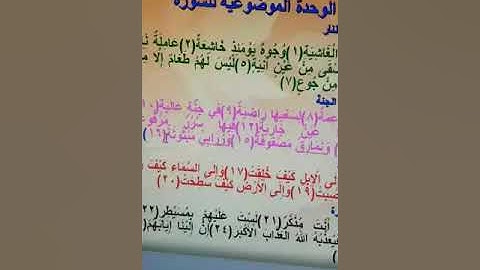 الوحدة الموضوعية للسورة
الغاشية(١)وجوه يومئذ خاشعة(٢)عاملة
من عين آنية(٥)ليس لهم طعام إلا
من جوع(٧)
الجنة
لسعيها راضية(٩)في جنة عالية
عين جارية(١٢)فيها سرر
ونمارق مصفوفة(١٥)وزرابي مبثوثة(١٦)
الإبل كيف خلقت(١٧)وإلى السماء كيف
(١٩)وإلى الأرض كيف سطحت(٢٠)
أنت مذكر(٢١)لست عليهم بمسيطر(٢٢)
الله العذاب الأكبر(٢٤)إن إلينا إيابهم